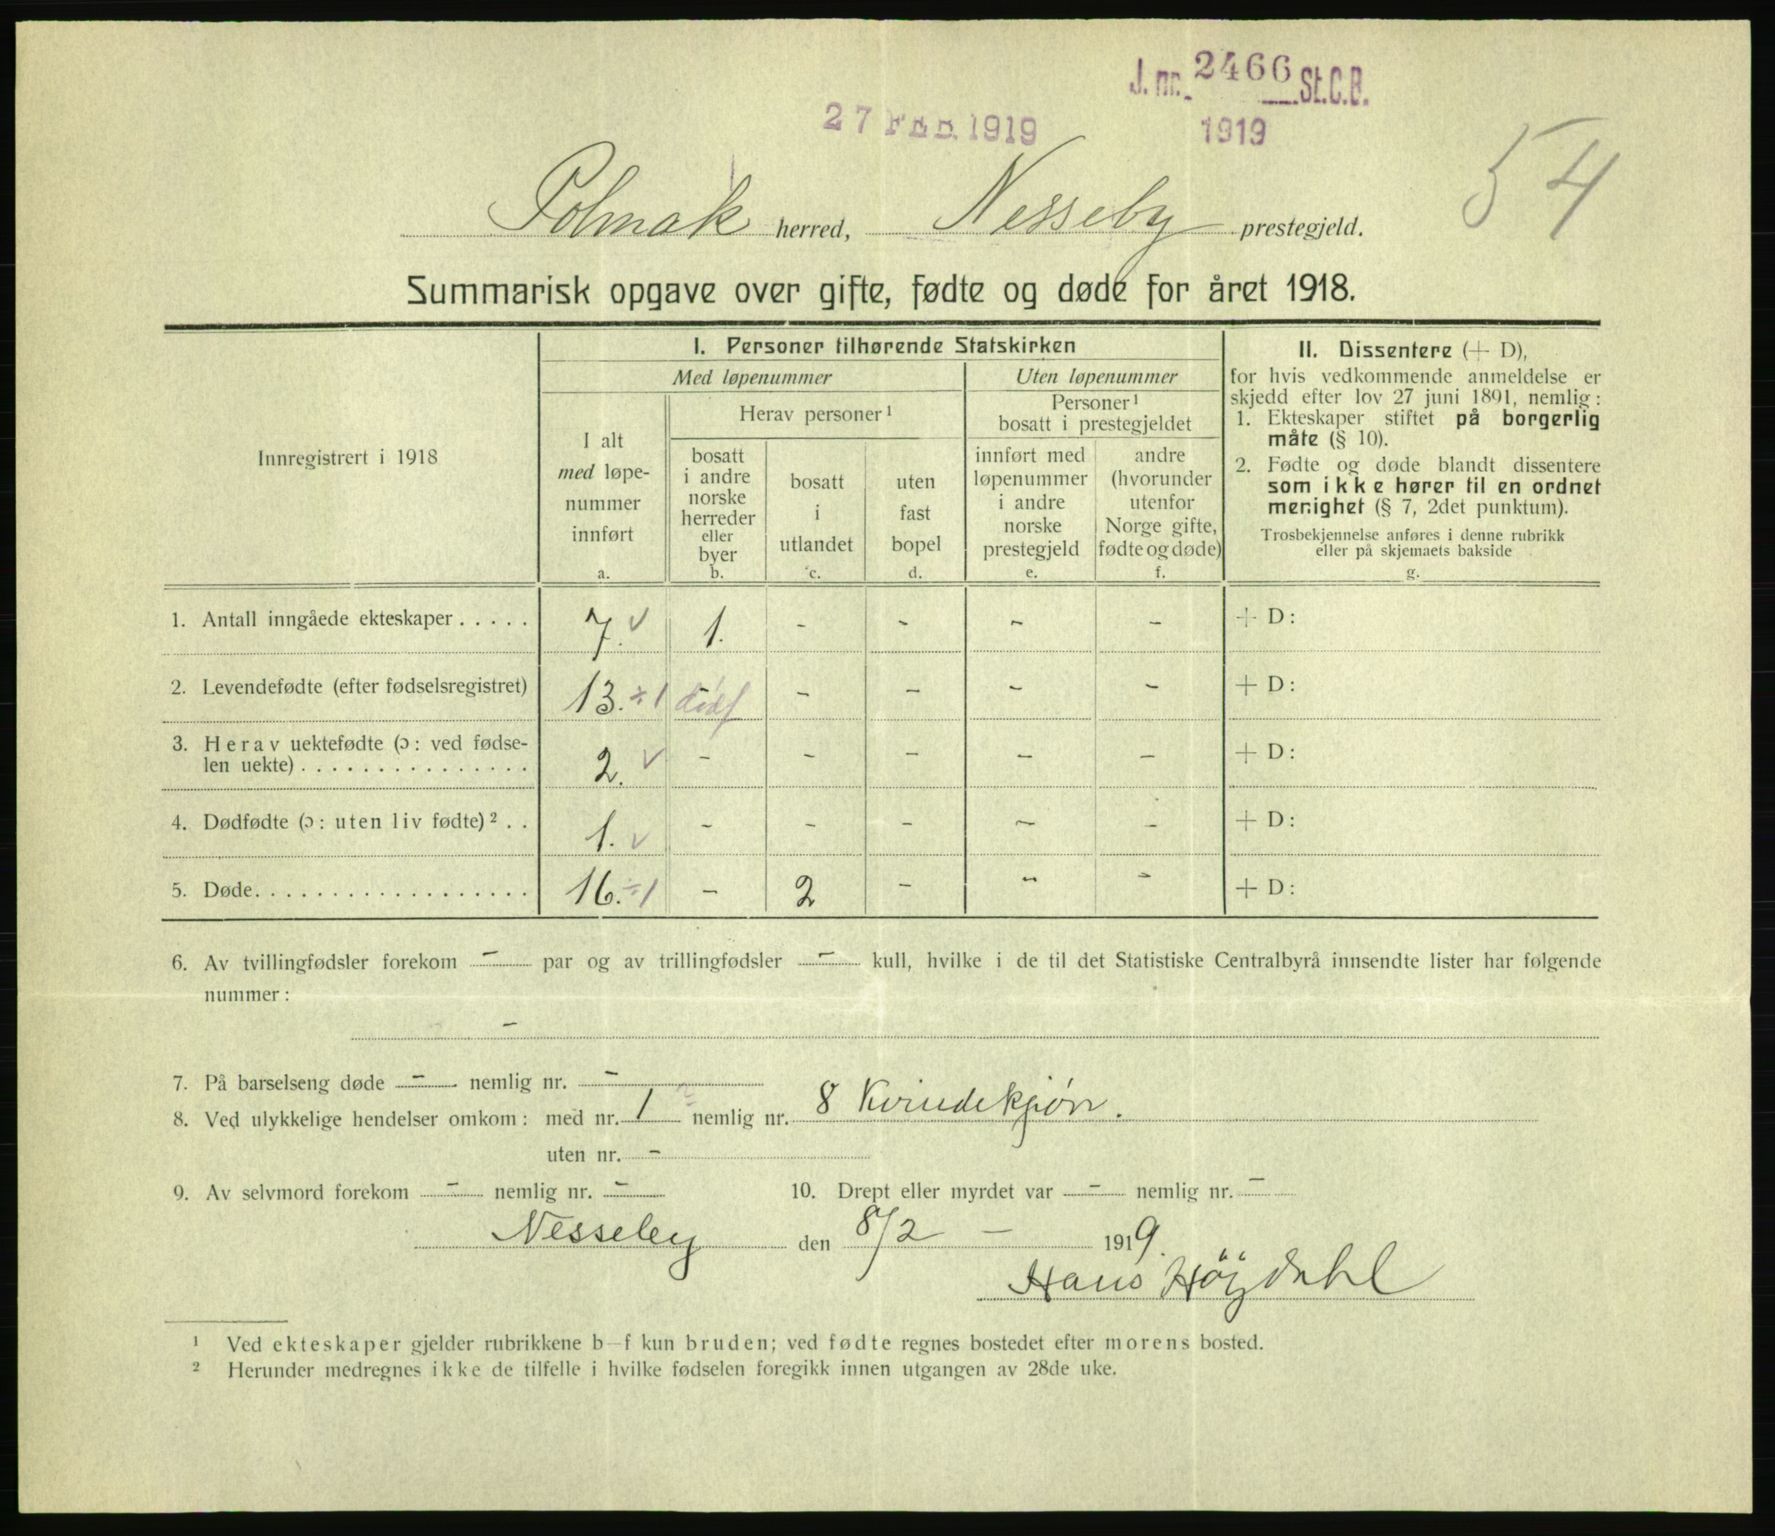 J. nr. 2466 St.C.B.
27 FEB. 1919
1919
54
Polmak herred, Nesseby prestegjeld.
Summarisk opgave over gifte, fødte og døde for året 1918.
Innregistrert i 1918
I. Personer tilhørende Statskirken
Med løpenummer
Uten løpenummer
I alt
med løpe-
nummer
innført
a.
Herav personer¹
bosatt
i andre
norske
herreder
eller
byer
b.
bosatt
i
utlandet
c.
uten
fast
bopel
d.
Personer¹
bosatt i prestegjeldet
innført med
løpenummer
i andre
norske
prestegjeld
e.
andre
(hvorunder
utenfor
Norge gifte,
fødte og døde)
f.
II. Dissentere (+ D),
for hvis vedkommende anmeldelse er
skjedd efter lov 27 juni 1891, nemlig:
1. Ekteskaper stiftet på borgerlig
måte (§ 10).
2. Fødte og døde blandt dissentere
som ikke hører til en ordnet
menighet (§ 7, 2det punktum).
Trosbekjennelse anføres i denne rubrikk
eller på skjemaets bakside
g.
1. Antall inngåede ekteskaper . . . . . 7. ✓ 1. - - - - + D:
2. Levendefødte (efter fødselsregistret) 13. ÷ 1 dødf - - - - + D:
3. Herav uektefødte (ɔ: ved fødse-
len uekte) . . . . . . . . . . . . . . . 2. ✓ - - - - - + D:
4. Dødfødte (ɔ: uten liv fødte)² . . 1. ✓ - - - - - + D:
5. Døde. . . . . . . . . . . . . . . . . . 16. ÷ 1 - 2 - - - + D:
6. Av tvillingfødsler forekom - par og av trillingfødsler - kull, hvilke i de til det Statistiske Centralbyrå innsendte lister har følgende
nummer:
-
7. På barselseng døde - nemlig nr. -
8. Ved ulykkelige hendelser omkom: med nr. 1 nemlig nr. 8 Kvindekjøn.
uten nr. -
9. Av selvmord forekom - nemlig nr. - 10. Drept eller myrdet var - nemlig nr. -
Nesseby den 8/2 - 1919.
Hans Höÿdahl
¹ Ved ekteskaper gjelder rubrikkene b–f kun bruden; ved fødte regnes bostedet efter morens bosted.
² Herunder medregnes ikke de tilfelle i hvilke fødselen foregikk innen utgangen av 28de uke.